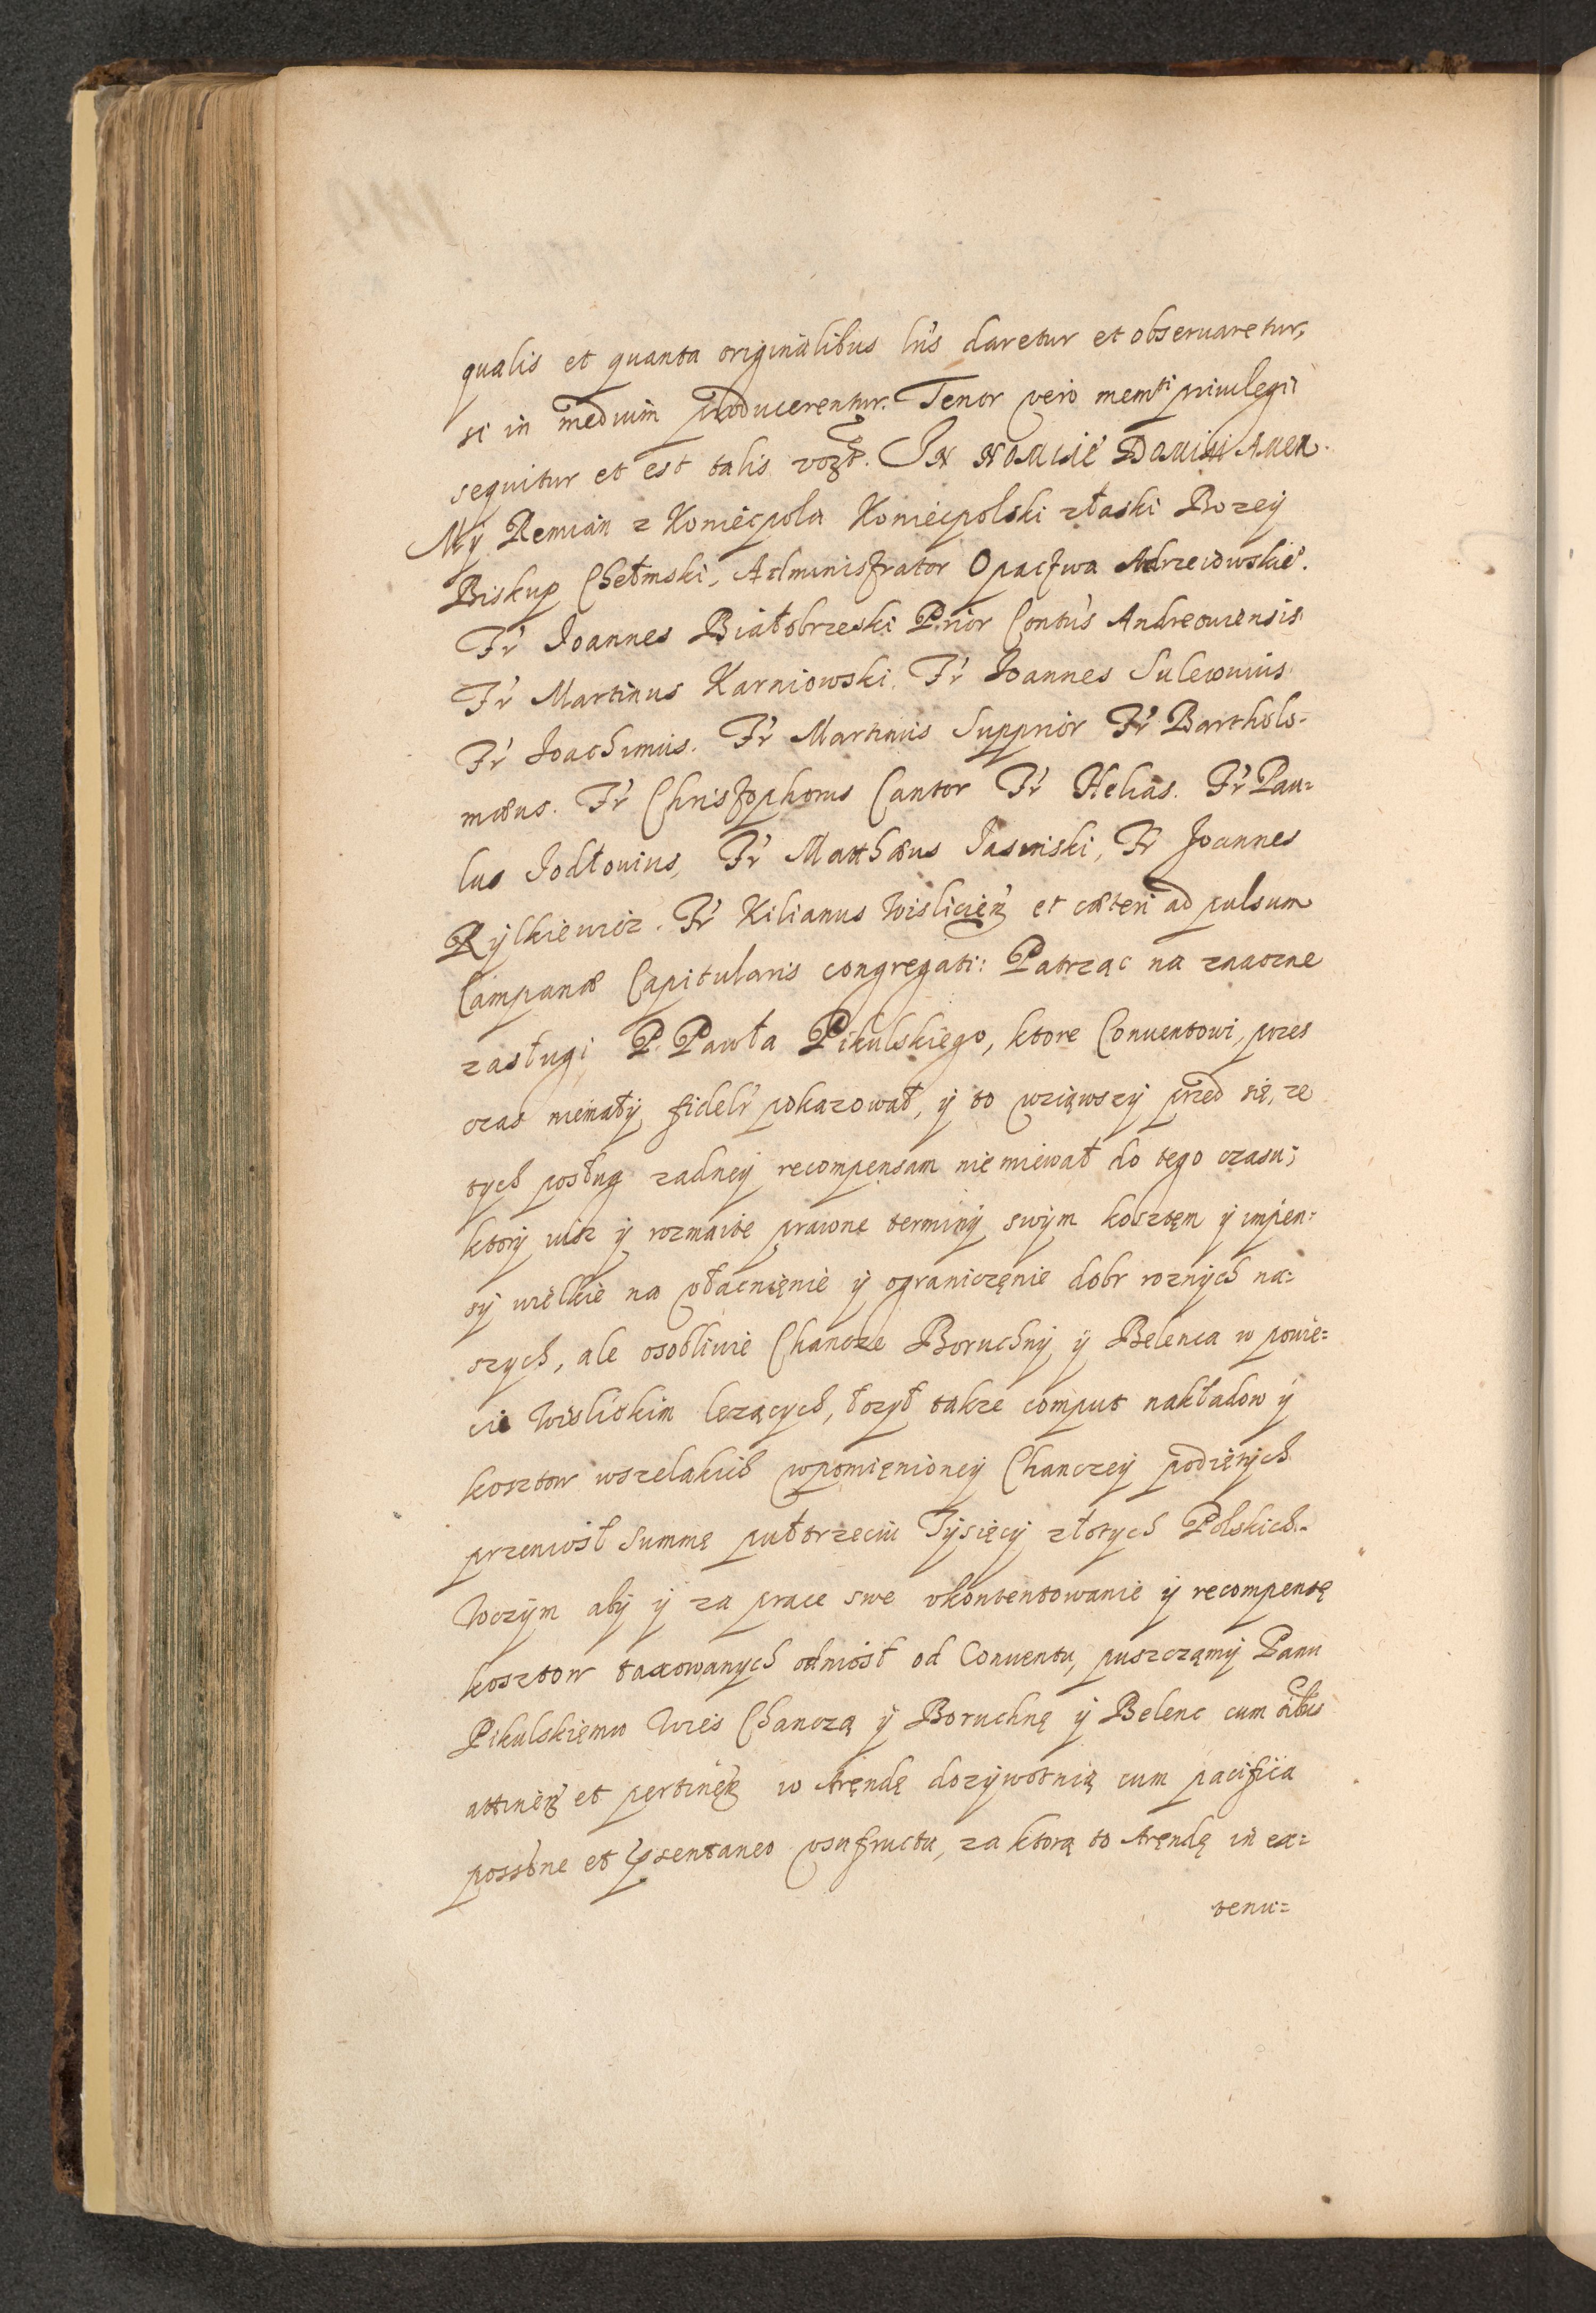 qualis et quanta originalibus lris daretur et obseruaretur,
si in medium producerentur. Tenor vero memti priuilegii
sequitur et est talis. In Nomine Domini Amen.
My Remian z Koniecpola Koniecpolski z łaski Bozey
Biskup Chełmski, Administrator Opactwa Adrzeiowskie.
Fr Joannes Białobrzeski Prior Contus Andreouiensis
Fr Martinus Karniowski. Fr Joannes Sulewuius
Fr Joachimus. Fr Martinus Supprior Fr Bartholo-
mæus. Fr Christophorus Cantor Fr Helias. Fr Pau-
lus Jodłouius, Fr Matthæus Jasinski, Fr Joannes
Rylkiewicz. Fr Kilianus Wislicien et cæteri ad pulsum
Campanæ Capitularis congregati: Patrząc na znaczne
zasługi P. Pawła Pikulskiego, ktore Conuentowi, przes
czas niemały fidelr pokazował, y to wziąwszy przed się, ze
tych posług zadney recompensam nie miewał do tego czasu;
ktory isz y rozmaite prawne terminy swym kosztem y impen-
sy wielkie na vłacnienie y ograniczenie dobr roznych na-
szych, ale osobliwie Chancze Boruchny y Belenca w powie-
cie Wislickim lezących, łozył takze comput nakładow y
kosztow wszelakich wpomienioney Chanczey podiętych
przeniosł Summę pułtrzeciu Tysięcy złotych Polskich.
Wczym aby y za prace swe vkontentowanie y recompensę
kosztow taxowanych odniosł od Conuentu, puszczamy Panu
Pikulskiemu Wies Chanczą y Boruchnę y Belenc cum oibus
attinen et pertinen w Arendę dozywotnią cum pacifica
possne et psentaneo vsufructu, za ktorą to Arendę in ex-
tenu-